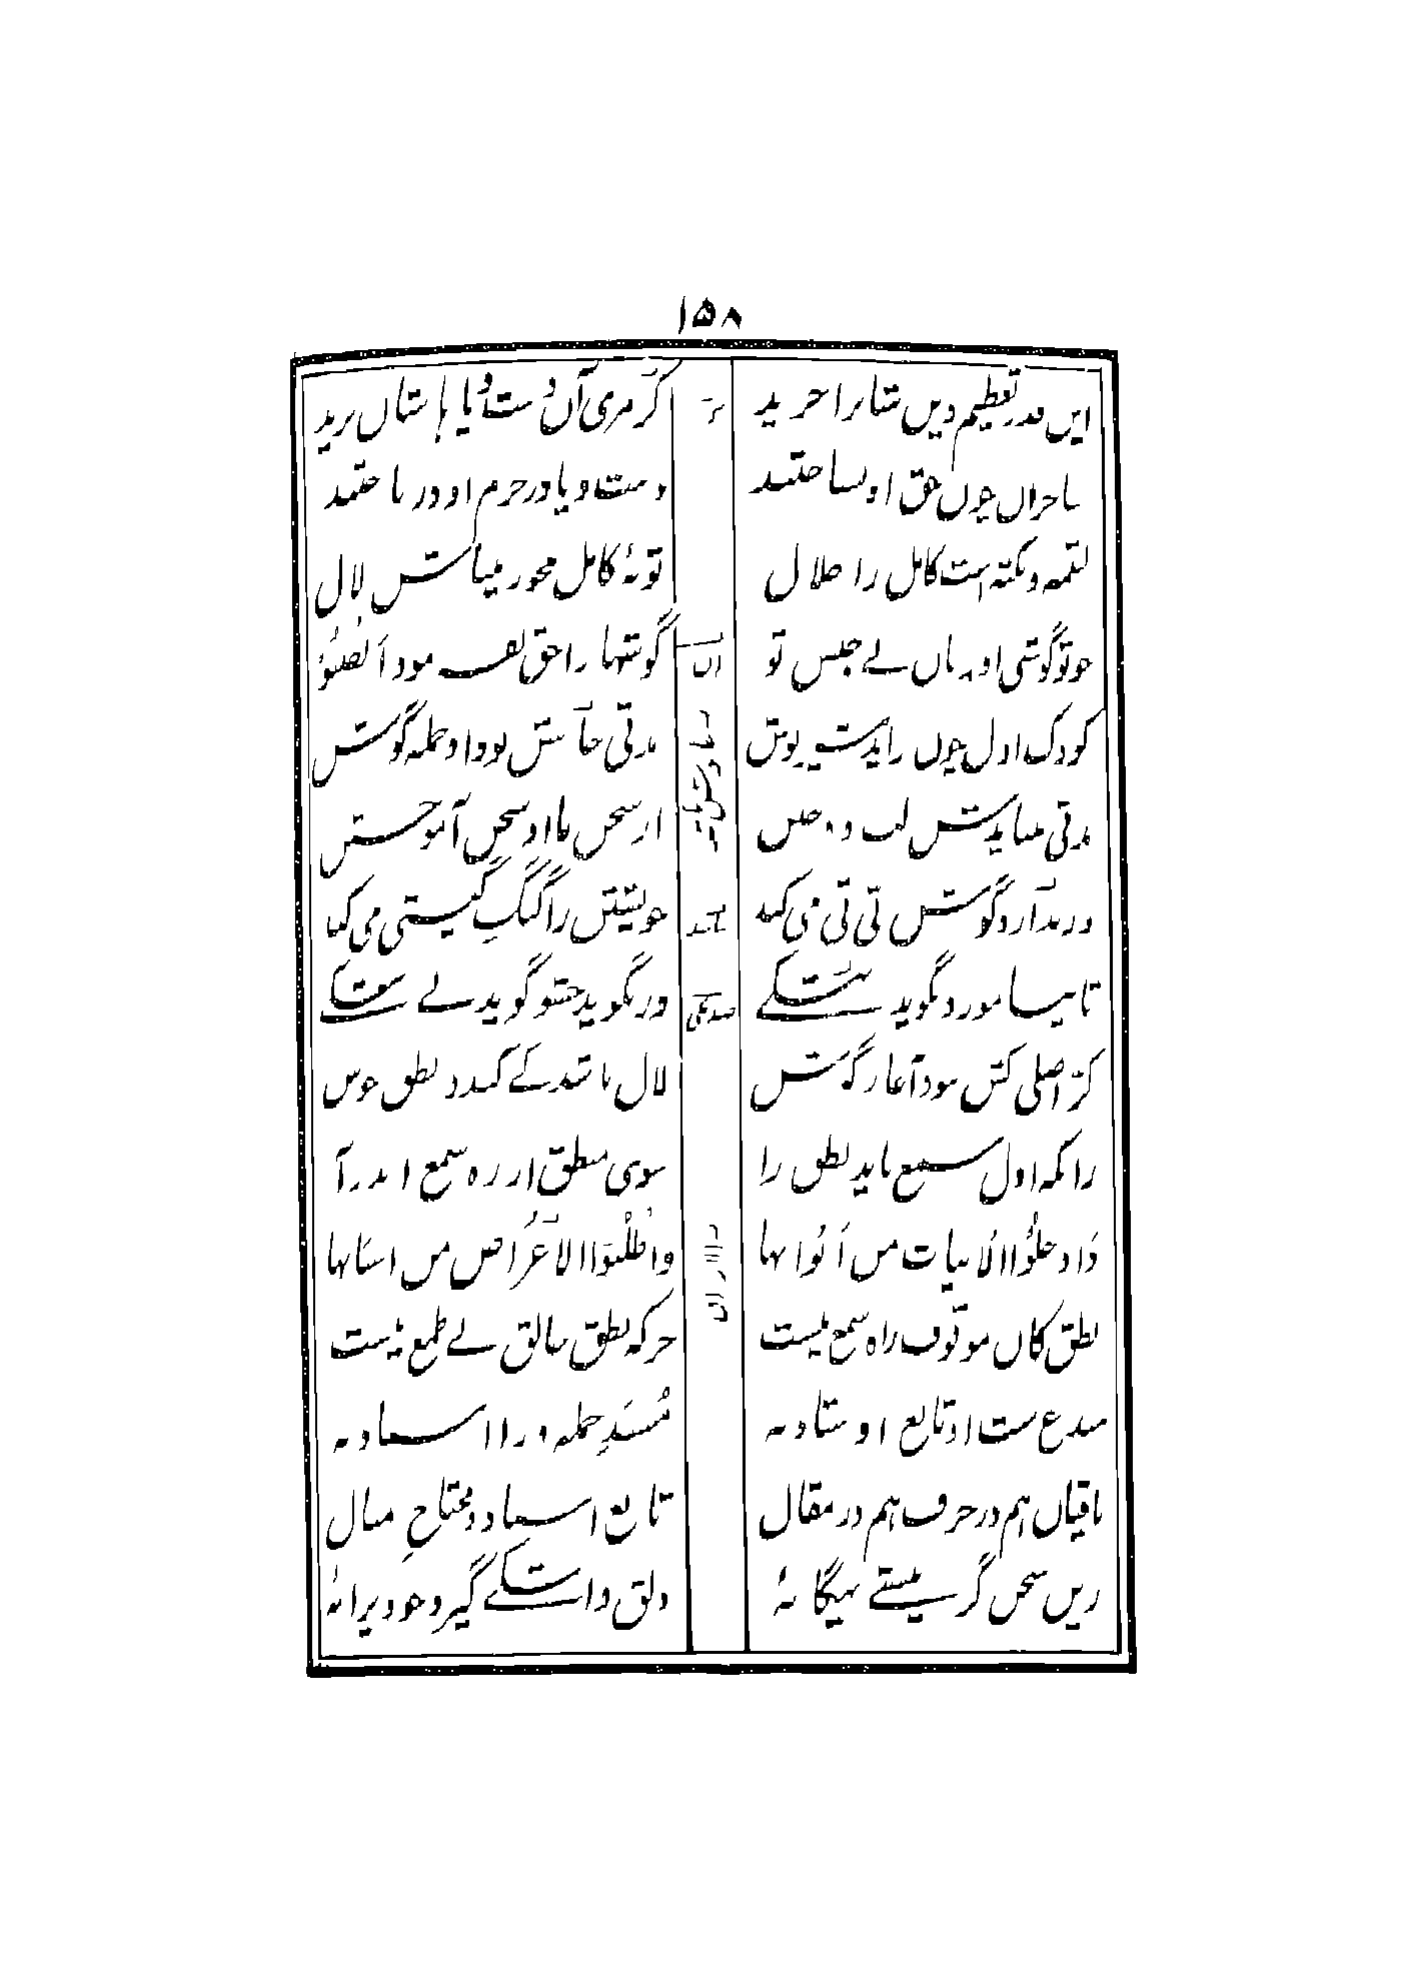 ۱۵۸
ایں قدر تعظیم دیں شانرا خرید گز مری آں دست و پاہاشاں برید
ساحراں چوں حق او بشناختند دست و پا در جرم او در باختند
لقمه و نکته است کامل را حلال تو نهٔ کامل مخور میباش لال
چو تو گوشی او زباں نے جنس تو گوشها را حق بفرمود أَنْصِتُوْا
کودک اول چوں بزاید شیر نوش مدتی خامش بود او جمله گوش
مدتی میبایدش لب دوختن از سخن تا او سخن آموختن
ور ندارد گوش تی تی می کند خویشتن را گنگ گیتی می کند
تا نیاموزد نگوید ور بگوید حشو گوید بے شکے
کر اصلی کش نبود آغاز گوش لال باشد کے کند در نطق جوش
زانکه اول سمع باید نطق را سوی منطق از ره سمع اندر آ
وَادْخُلُوا الْأَبْيَاتَ مِنْ أَبْوَابِهَا وَاطْلُبُوا الْأَغْرَاضَ مِنْ أَسْبَابِهَا
نطق کاں موقوف راه سمع نیست جز که نطق خالق بے طمع نیست
مبدع ست او تابع اوستاد نه مسند جمله ورا اسناد نه
باقیاں هم در حرف هم در مقال تابع استاد و محتاج مثال
زیں سخن گر نیستی بیگانهٔ دلق و اشکے گیر و جو ویرانهٔ